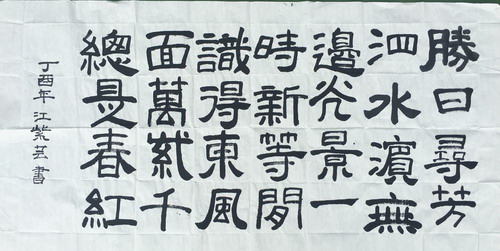 勝日尋芳
泗水濱無
邊光景一
時新等閒
識得東風
面萬紫千
總是春紅
丁酉年江紫芸書